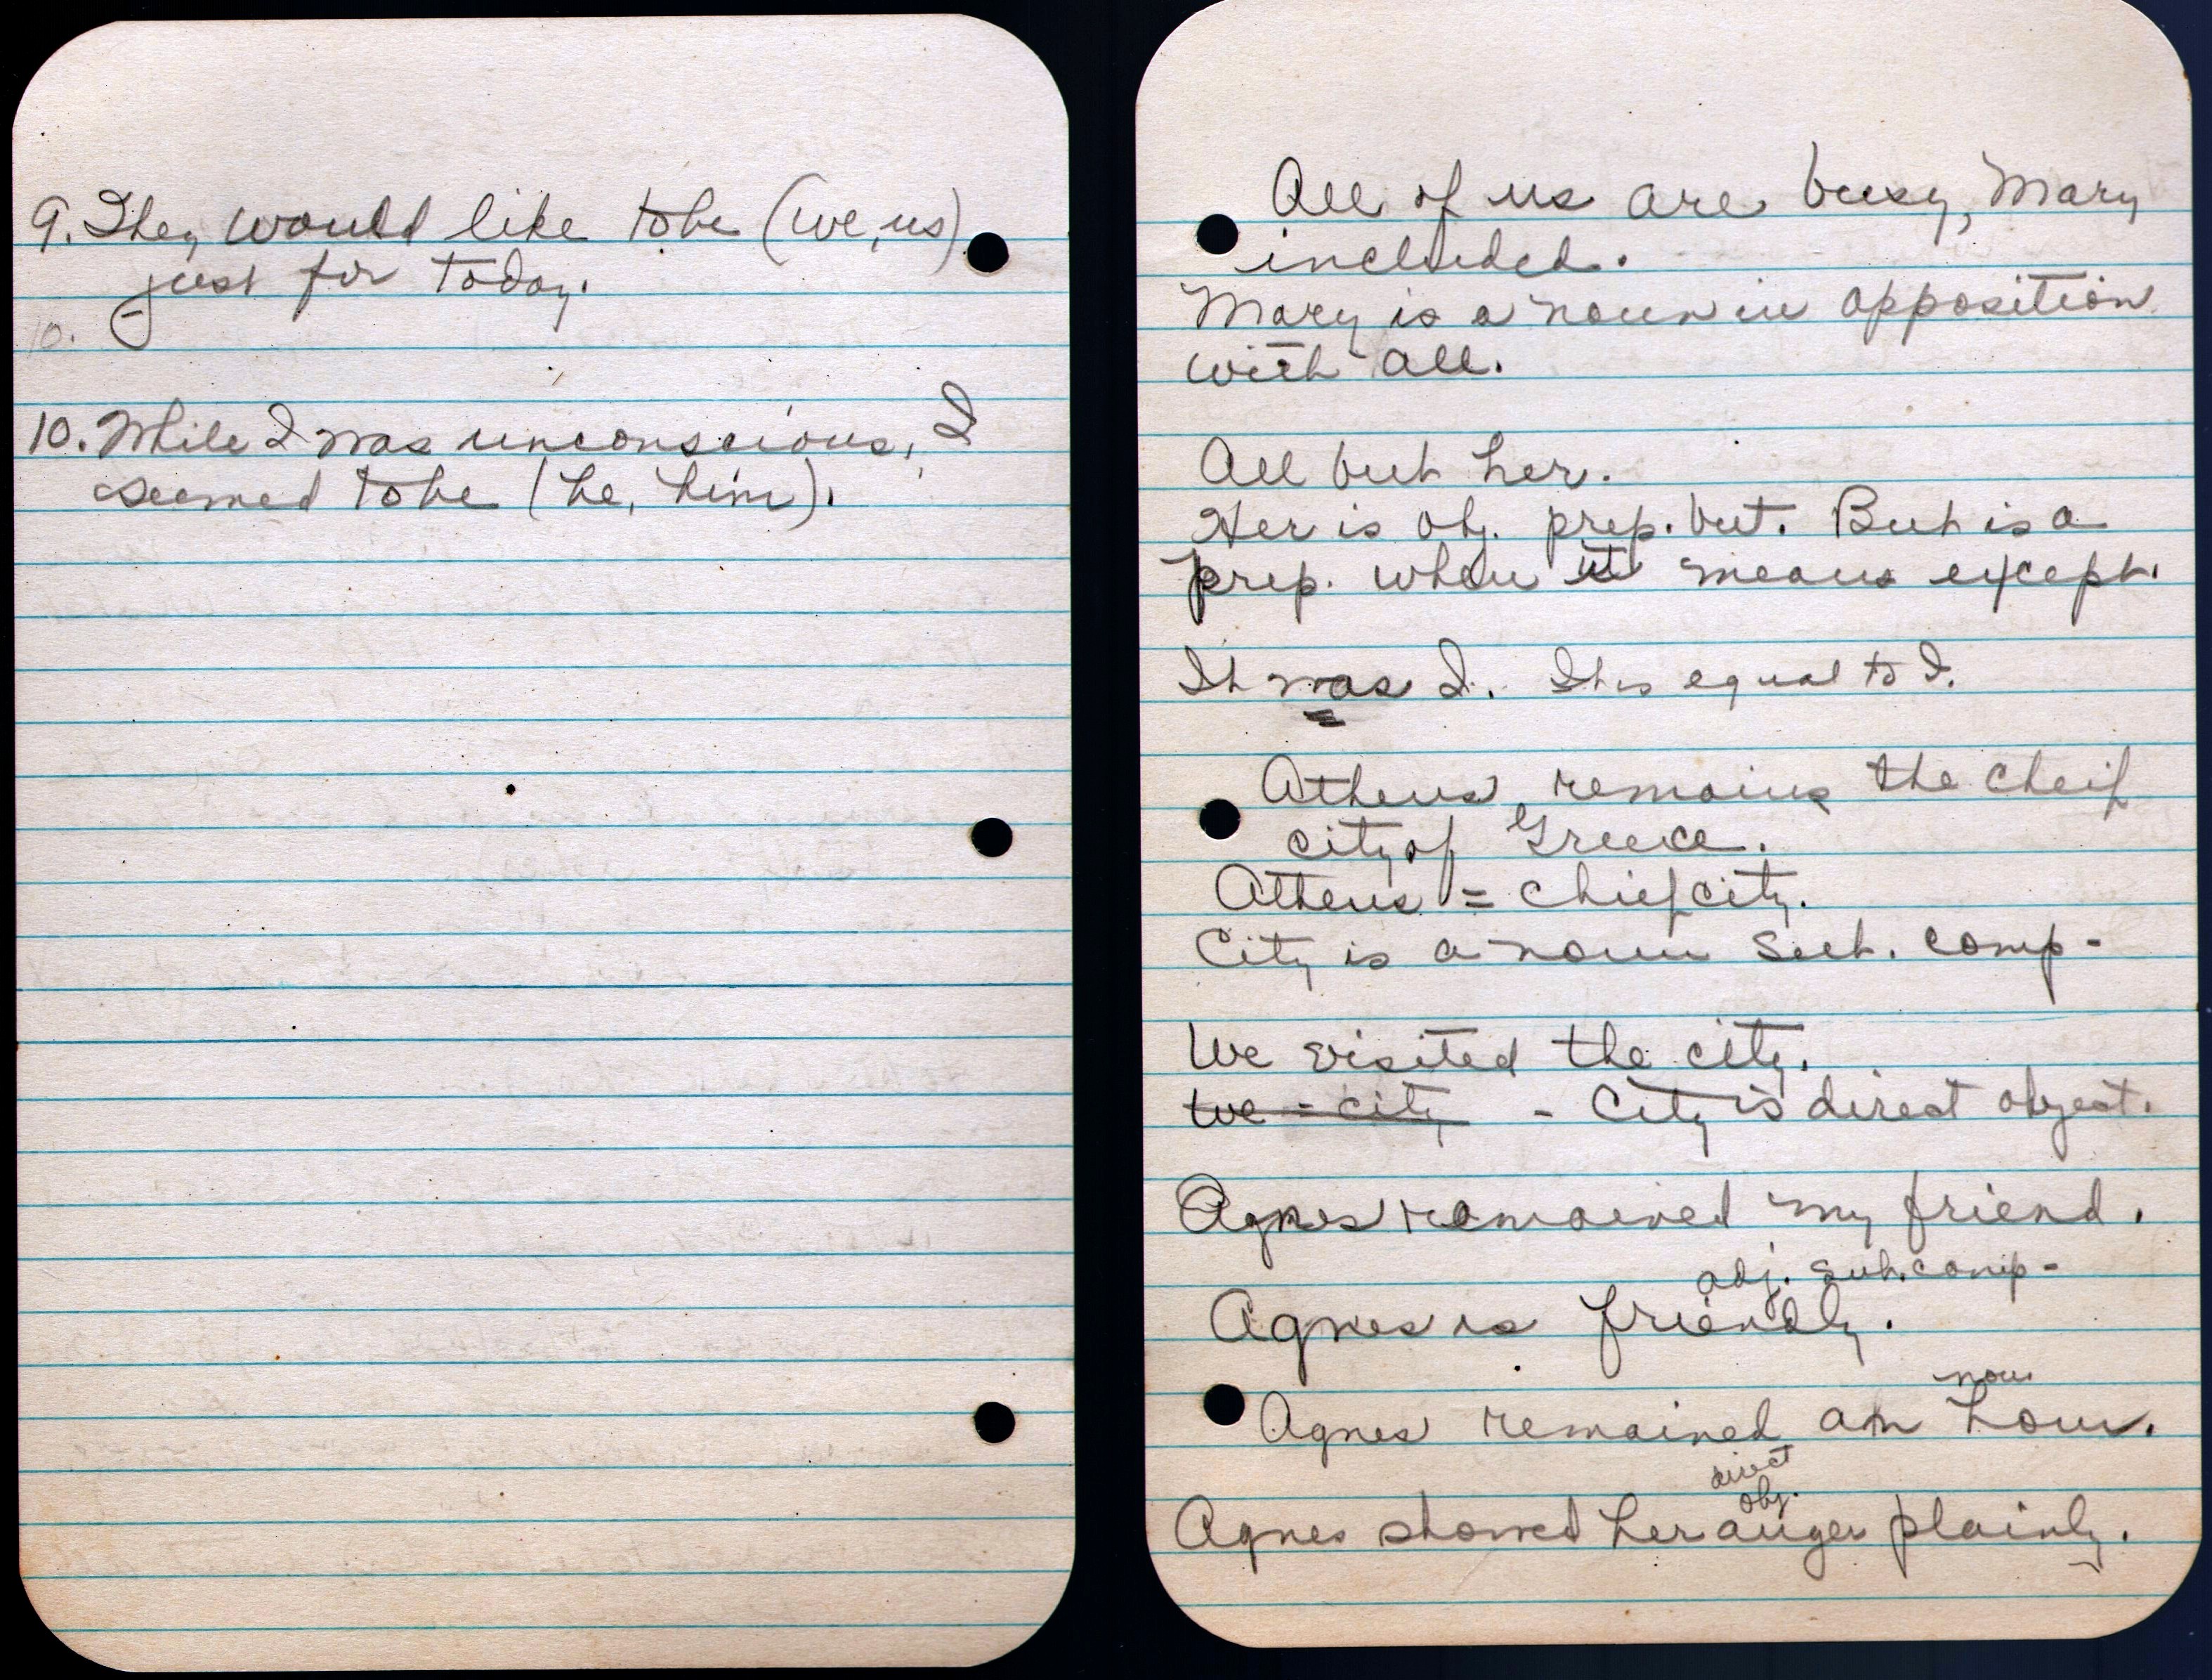 9. They would like to be (we, us)
just for today.
10.
10. While I was unconscious, I
seemed to be (he, him).
All of us are busy, Mary
included.
Mary is a noun in opposition
with all.
All but her.
Her is obj. prep. but. But is a
prep. when it means except.
It was I. It is equal to I.
=
Athens remains the cheif
city of Greece.
Athens = chief city.
City is a noun sub. comp-
We visited the city.
We = city - City is direct object.
Agnes remained my friend.
adj. sub. comp-
Agnes is friendly.
noun
Agnes remained an hour.
direct
obj.
Agnes showed her anger plainly.